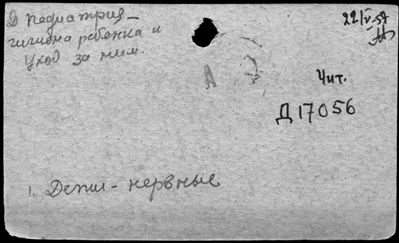 Педиатрия -
гигиена ребенка и
уход за ним.
22/V-57
А
Чит.
Д 17056
1. Дети - нервные